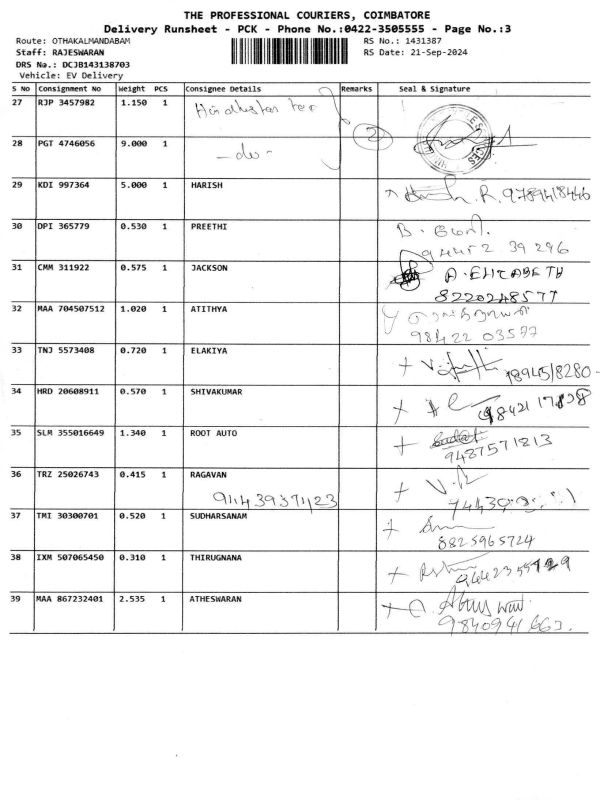 THE PROFESSIONAL COURIERS, COIMBATORE
Delivery Runsheet - PCK - Phone No.:0422-3505555 - Page No.:3
Route: OTHAKALMANDABAM RS No.: 1431387
Staff: RAJESWARAN RS Date: 21-Sep-2024
DRS No.: DCJB143138703
Vehicle: EV Delivery
S No Consignment No Weight PCS Consignee Details Remarks Seal & Signature
27 RJP 3457982 1.150 1 Hindustan
2
28 PGT 4746056 9.000 1 -do-
29 KDI 997364 5.000 1 HARISH R. 9789418446
30 DPI 365779 0.530 1 PREETHI B.
94452 39296
31 CMM 311922 0.575 1 JACKSON A. ELIZABETH
8220248577
32 MAA 704507512 1.020 1 ATITHYA
98422 03577
33 TNJ 5573408 0.720 1 ELAKIYA
34 HRD 20608911 0.570 1 SHIVAKUMAR
35 SLM 355016649 1.340 1 ROOT AUTO
9487571213
36 TRZ 25026743 0.415 1 RAGAVAN
9443937423
37 TMI 30300701 0.520 1 SUDHARSANAM
8825965724
38 IXM 507065450 0.310 1 THIRUGNANA
39 MAA 867232401 2.535 1 ATHESWARAN
9840941663.